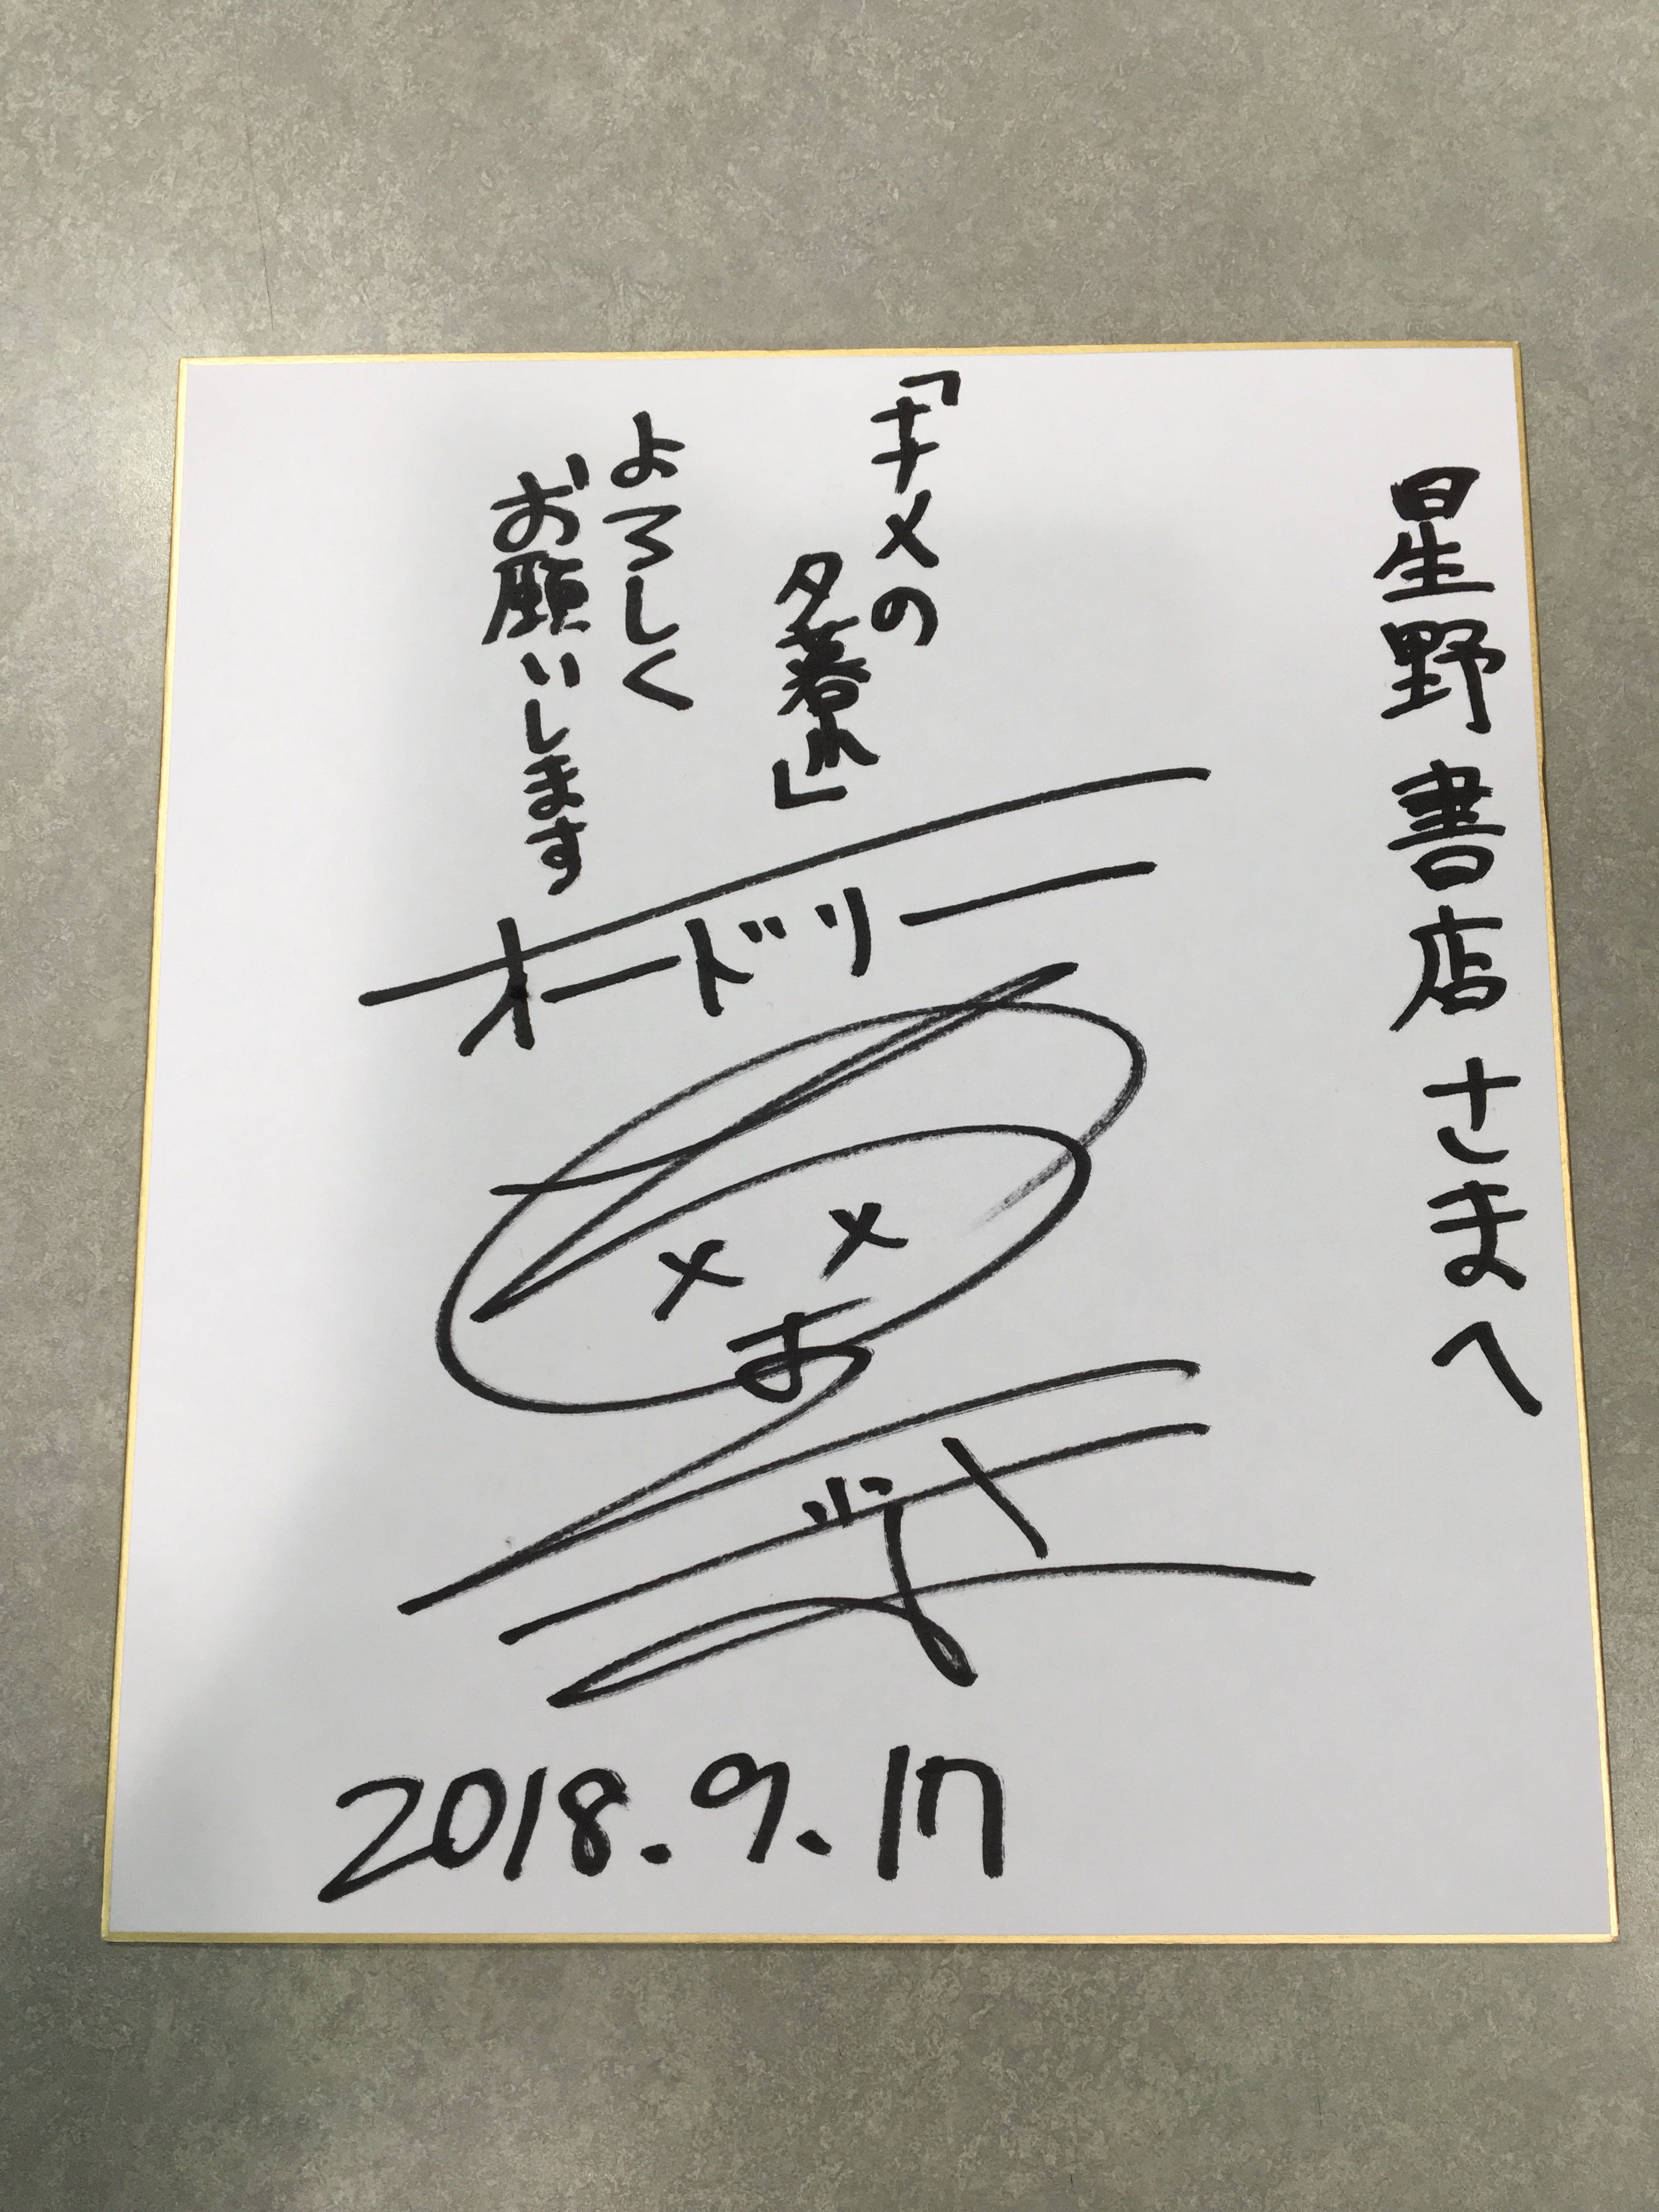 星野書店さまへ
「ナナメの
夕暮れ」
よろしく
お願いします
オードリー
2018.9.17